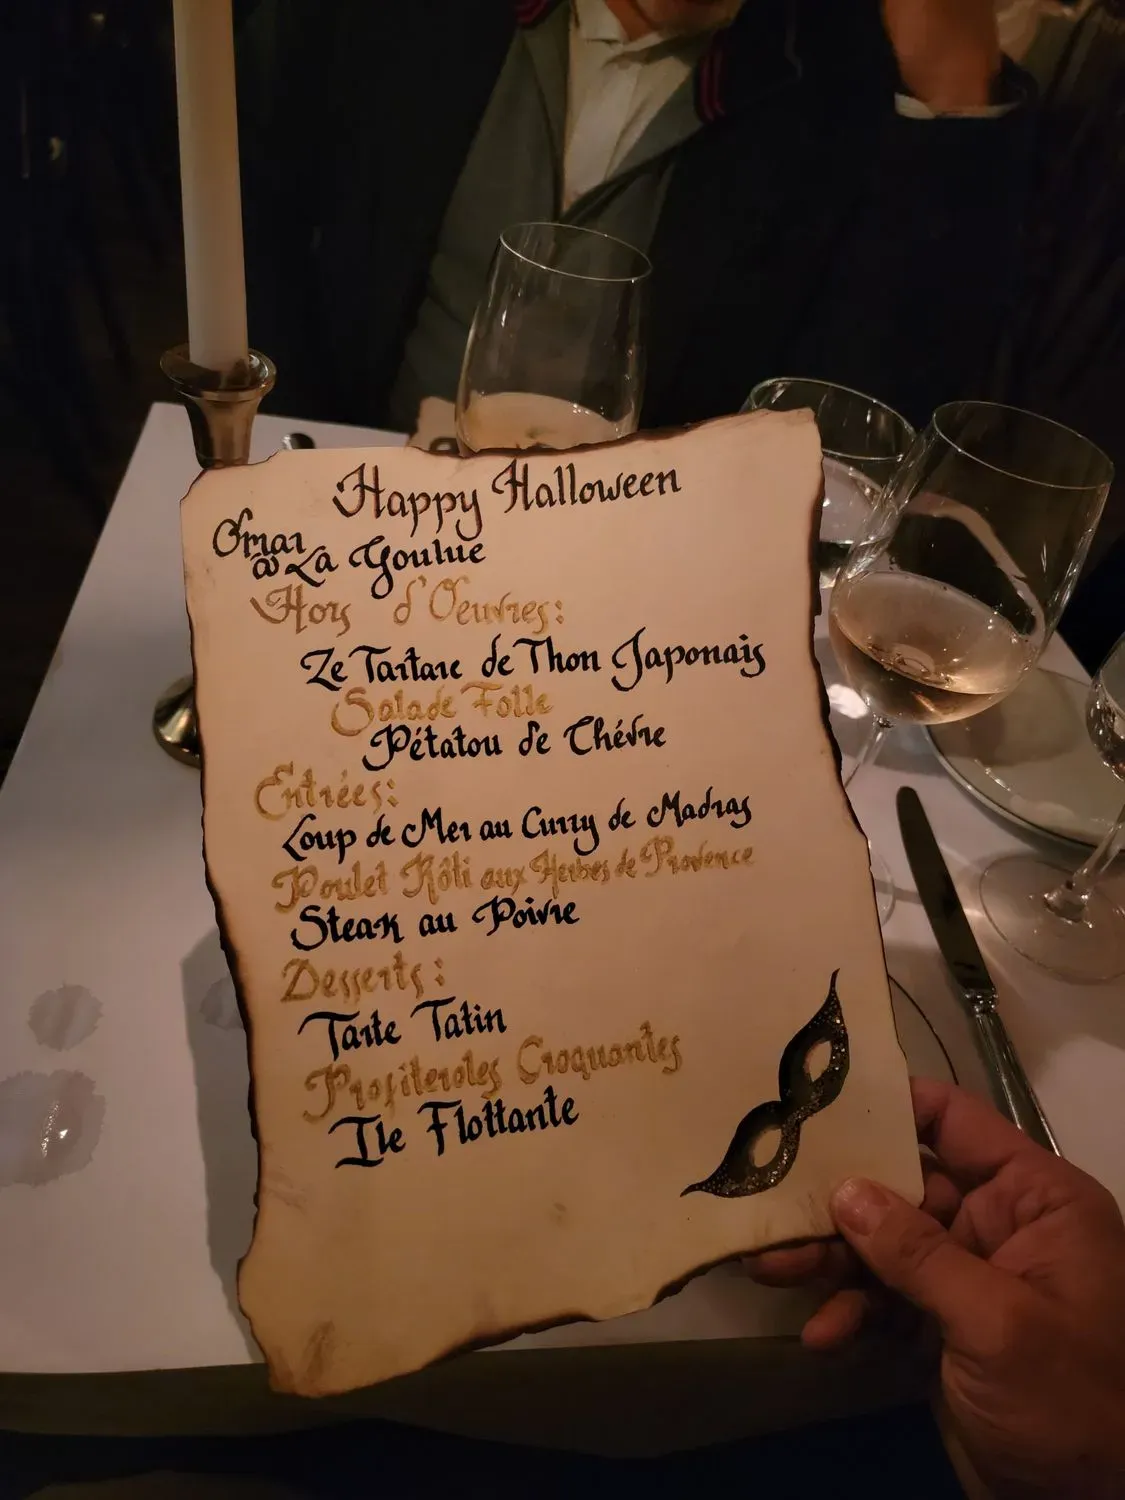 Happy Halloween
Omar
@ La Goulue
Hors d'Oeuvres:
Ze Tartare de Thon Japonais
Salade Folle
Pétatou de Chévre
Entrées:
Loup de Mer au Curry de Madras
Poulet Rôti aux Herbes de Provence
Steak au Poivre
Desserts:
Tarte Tatin
Profiteroles Croquantes
Ile Flottante